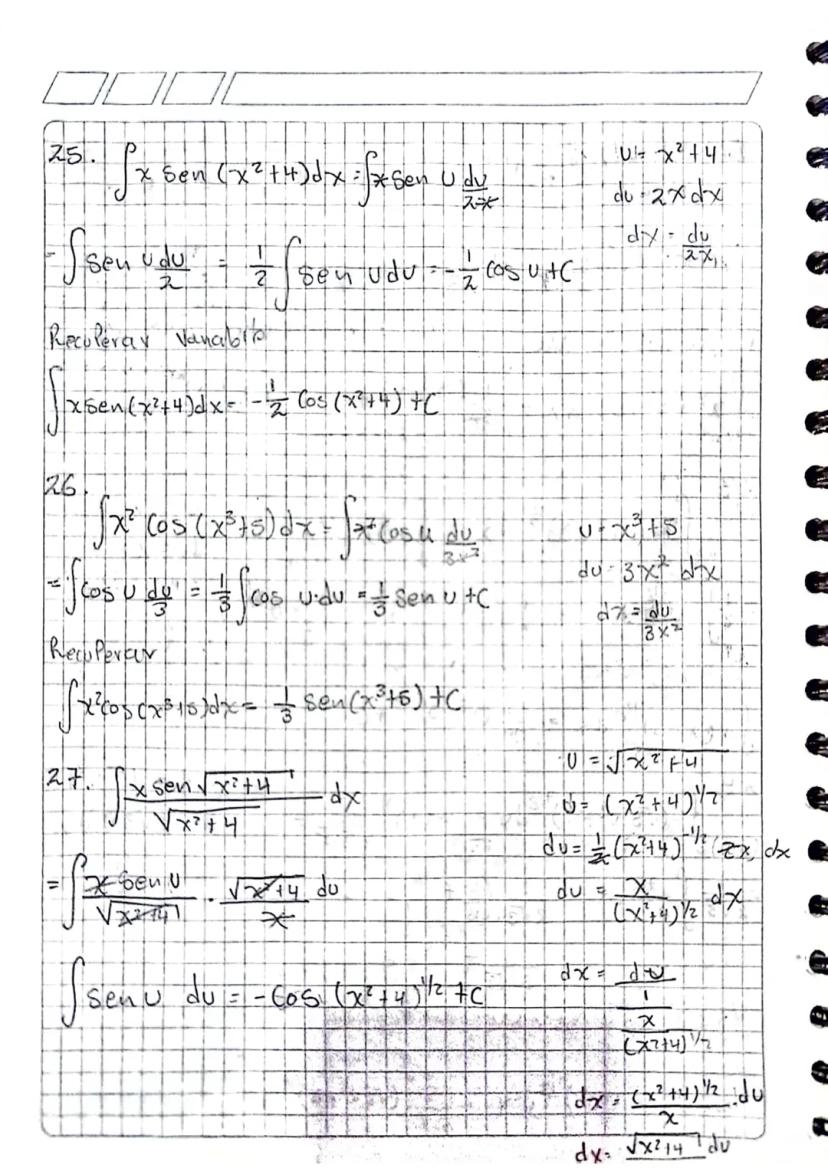 25. ∫ x sen (x²+4)dx = ∫ x sen u du/2x
u = x²+4
du = 2x dx
dx = du/2x
= ∫ sen u du/2 = 1/2 ∫ sen u du = -1/2 cos u + C
Recuperar variable
∫ x sen (x²+4)dx = -1/2 Cos (x²+4) + C
26.
∫ x² Cos (x³+5) dx = ∫ x² Cos u du/3x²
u = x³+5
du = 3x² dx
dx = du/3x²
= ∫ cos u du/3 = 1/3 ∫ cos u·du = 1/3 Sen u + C
Recuperar
∫ x² cos (x³+5)dx = 1/3 Sen (x³+5) + C
27. ∫ x sen √(x²+4) / √(x²+4) dx
u = √(x²+4)
u = (x²+4)^1/2
du = 1/2 (x²+4)^-1/2 (2x dx
du = x/(x²+4)^1/2 dx
= ∫ x sen u/√(x²+4) · √(x²+4)/x du
∫ sen u du = -Cos (x²+4)^1/2 + C
dx = du / 1 / x / (x²+4)^1/2
dx = (x²+4)^1/2 / x · du
dx = √(x²+4) du